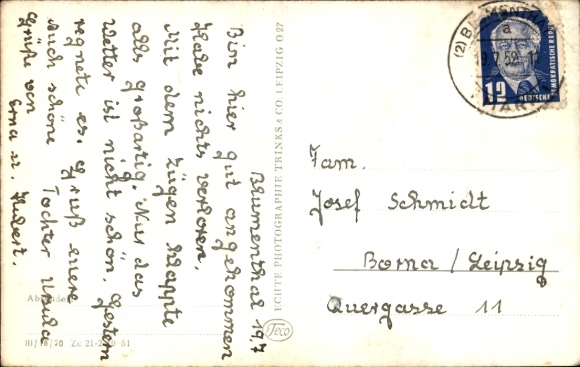 Blumenthal 19.7
Bin hier gut angekommen
Habe nichts verloren.
Mit dem Zügen klappte
alls großartig. Nur das
Wetter ist nicht schön. Gestern
regnete es. Gruß euere
auch schöne Tochter Ursula
Grüße von
Erna u. Hubert.
ECHTE PHOTOGRAPHIE TRINKS & CO. LEIPZIG O 27
Teco
Absender
III/18/20 Zc 51
(2) BLUMENTHAL
a
12
DEUTSCHE
DEMOKRATISCHE REPUBLIK
Fam.
Josef Schmidt
Borna / Leipzig
Quergasse 11